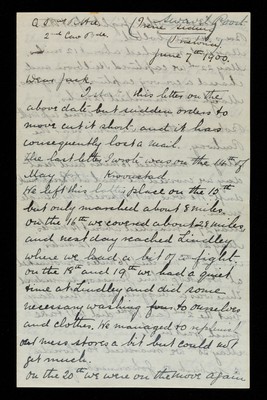 2nd Cav Bde.
June 7th 1900.
Dear Jack,
this letter on the
above date but sudden orders to
move cut it short, and it has
consequently lost a mail.
The last letter I wrote was on the 14th of
May
We left this place on the 15th
but only marched about 8 miles,
on the 16th we covered about 28 miles
and next day reached Lindley
where we had a bit of a fight.
on the 18th and 19th we had a quiet
time at Lindley and did some
necessary washing to ourselves
and clothes. We managed to replenish
our mess stores a bit but could not
get much.
on the 20th we were on the move again